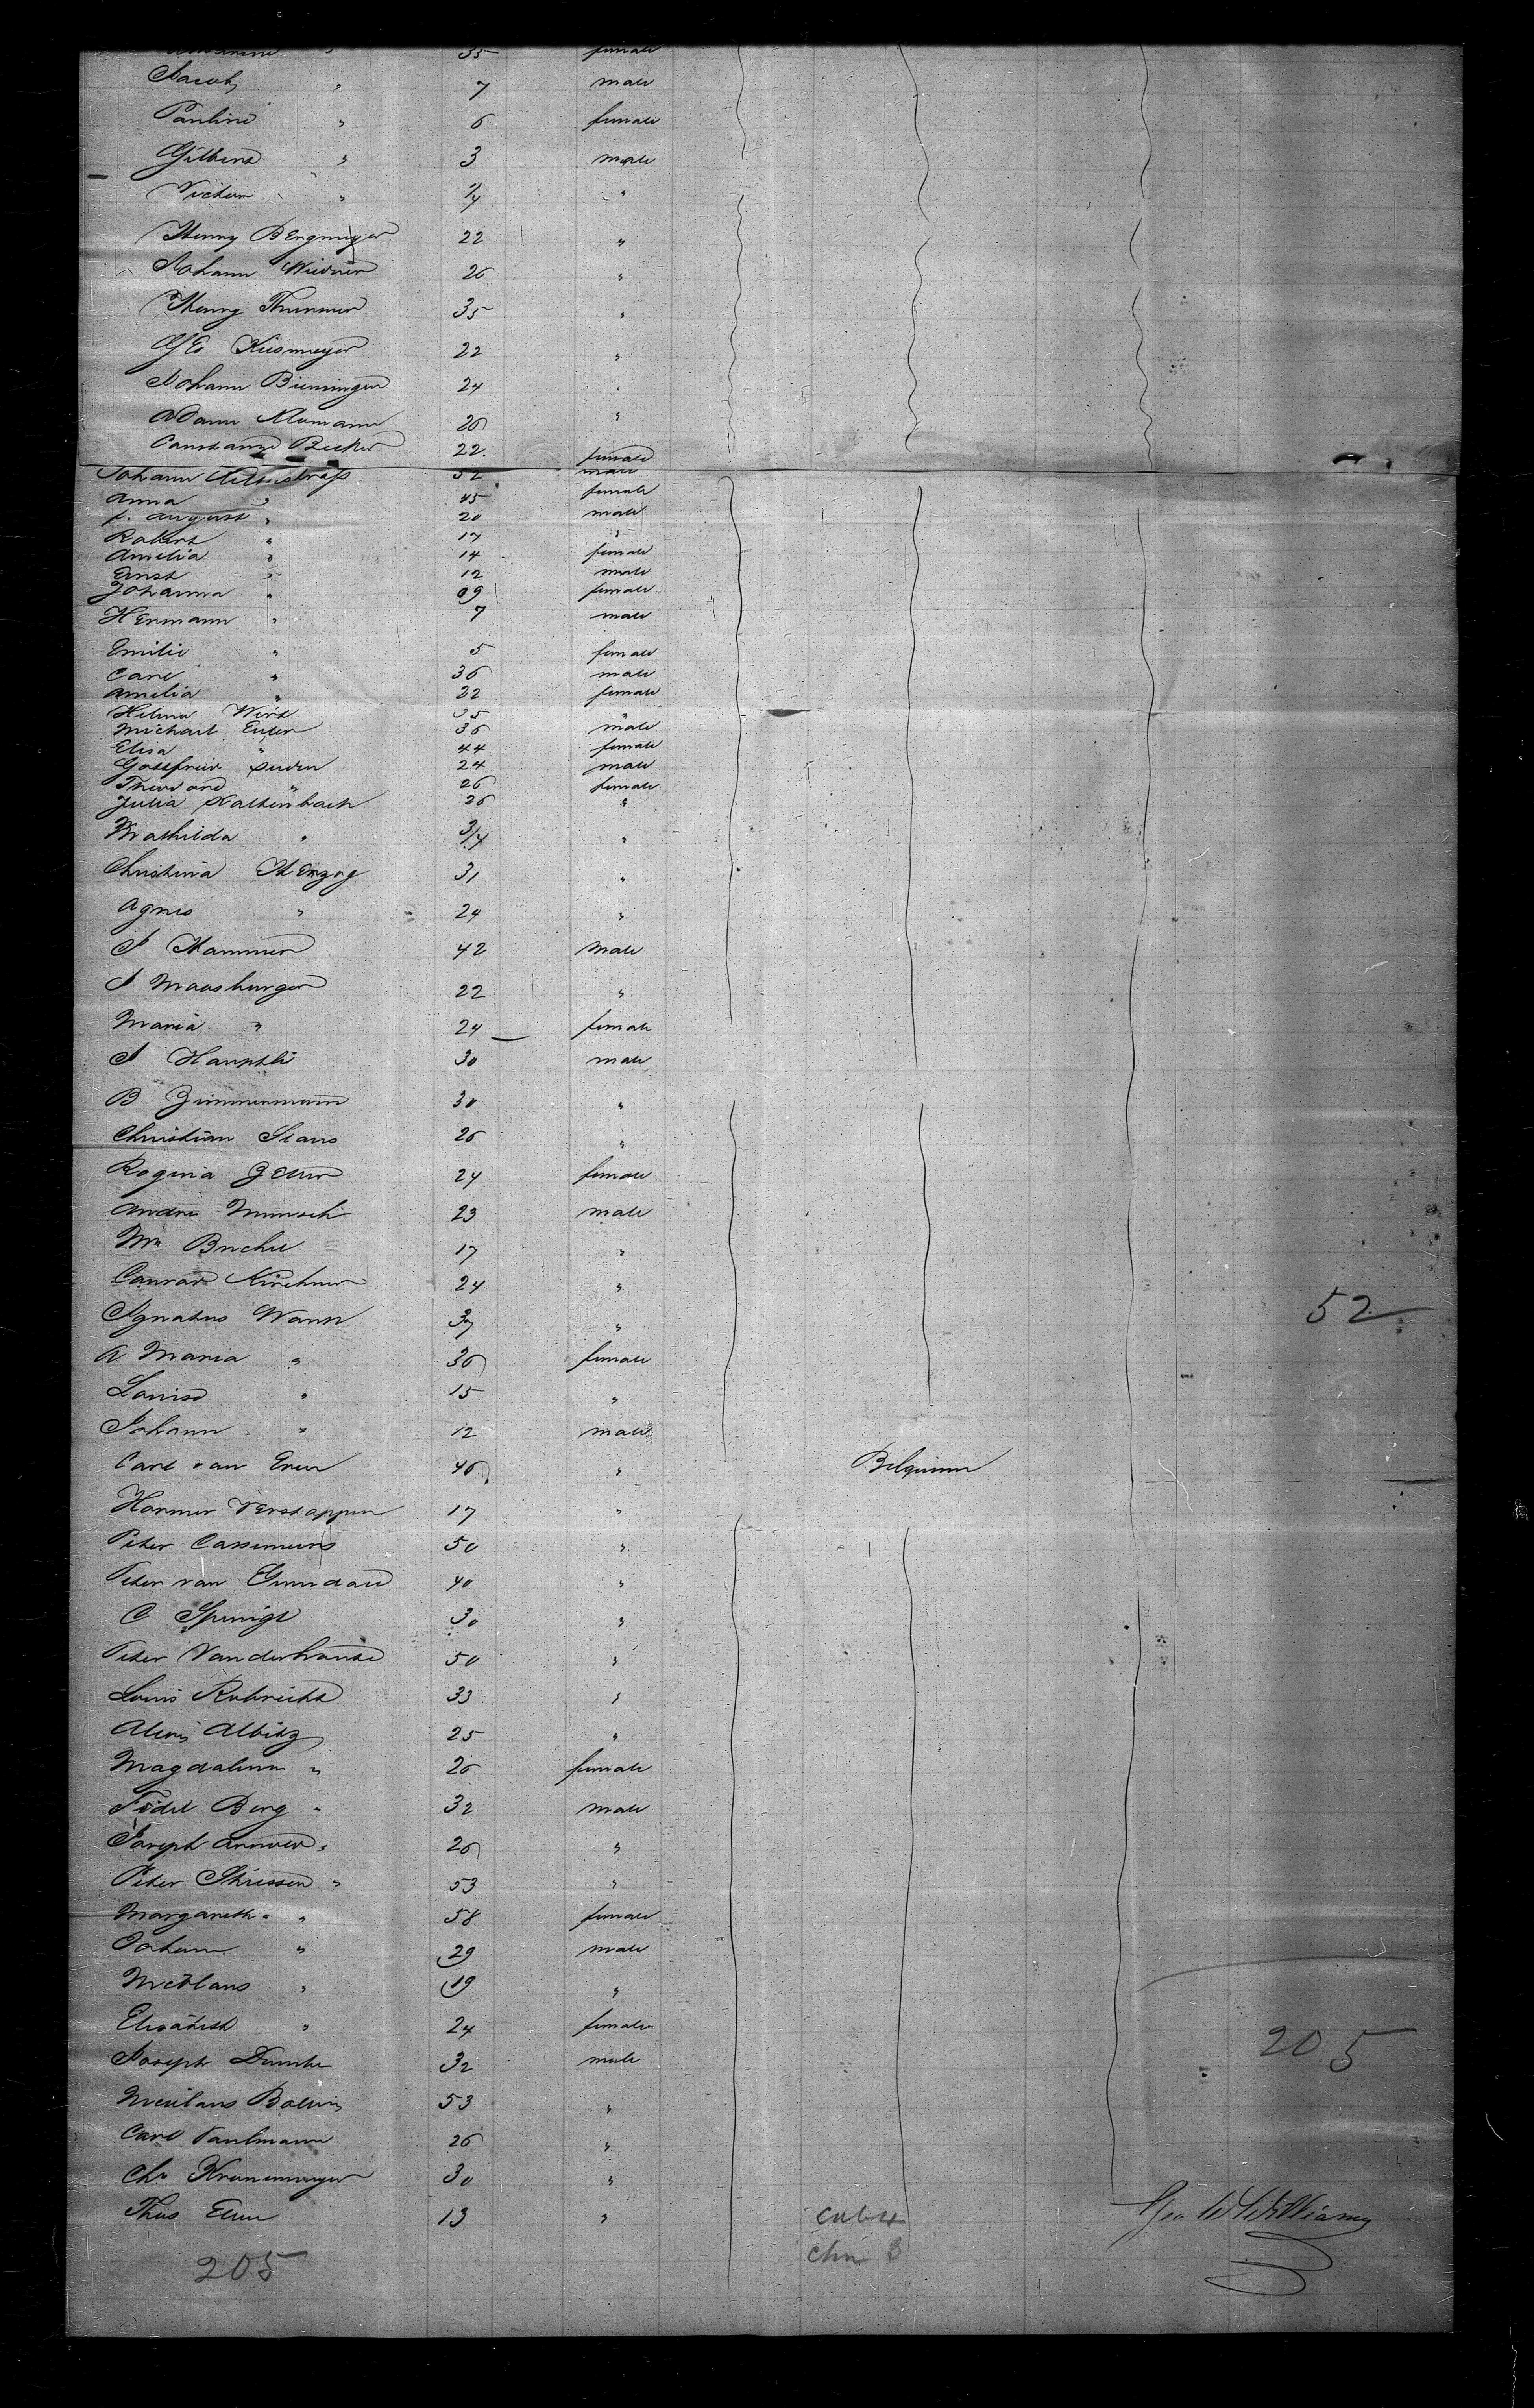 35 female
Jacob " 7 male
Pauline " 6 female
Gilbert " 3 male
Victor " "
Henry Bergmeyer 22 "
Johann Wiedner 26 "
Henry Thurmer 35 "
Geo Kiesmeyer 22 "
Johann Bieninger 24
Adam Aumann 26 "
Constanze Becker 22. female
Johann 52 male
Anna " 45 female
F. August " 20 male
Robert " 17 "
Amelia " 14 female
Ernst " 12 male
Johanna " 09 female
Hermann " 7 male
Emilie " 5 female
Carl " 36 male
Amelia " 22 female
Helena Wirt 35 "
Michael Euler 36 male
Elisa " 44 female
Gottfried 24 male
" 26 female
Julia Kaltenbach 26 "
Mathilda " 3/4 "
Christina Herzog 31 "
Agnes " 24 "
J Hammer 42 male
J Moosburger 22 "
Maria " 24 female
J Hauptli 30 male
B Zimmermann 30 "
Christian Staus 26 "
Rogina Zeller 24 female
Andre Minsch 23 male
Wm Buchel 17 "
Conrad Kirchner 24 "
Ignatus Wann 37 " 52
A Maria " 36 female
Louise " 15 "
Johann " 12 male
Carl van Eren 46 " Belgium
Hormer Verstappen 17 "
Peter Cassemeurs 50 "
Peter van 40 "
C 30 "
Peter Vanderhouse 50 "
Louis Rubrecht 33 "
Alois Albitz 25 "
Magdalena " 26 female
Fidel Berg " 32 male
Joseph Arnold " 26 "
Peter Thiessen " 53 "
Margareth " 58 female
Johann " 29 male
Nicolaus " 19 "
Elisabeth " 24 female 205
Joseph 32 male
Nicolaus 53 "
Carl Paulmann 26 "
Chr Kronemeyer 30 "
Thos 13 " Geo W Williams
205 3